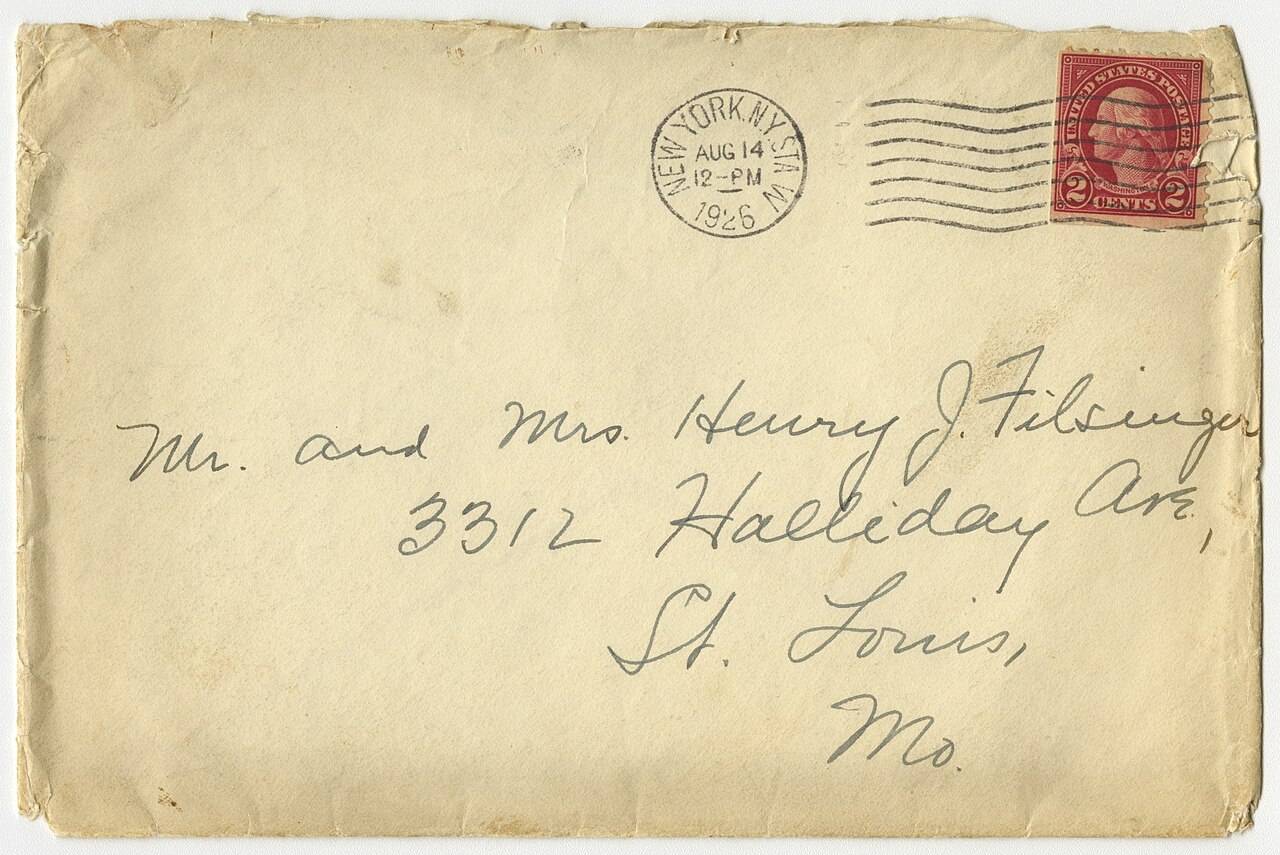 NEW YORK, N.Y. STA W
AUG 14
12-PM
1926
UNITED STATES POSTAGE
WASHINGTON
2 CENTS 2
Mr. and Mrs. Henry J. Filsinger
3312 Halliday Ave,
St. Louis,
Mo.